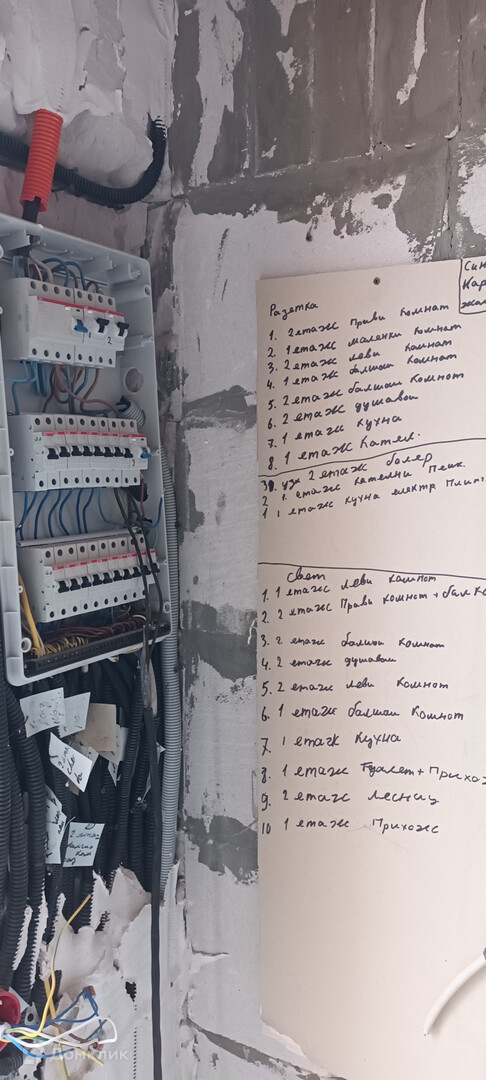 Син
Кар
Разетка
1. 2 етаж прави комнат
2. 1 етаж маленки комнат
3. 2 етаж леви комнат
4. 1 етаж балшои комнат
5. 2 етаж балшои комнот
6. 2 етаж душавои
7. 1 етаж кухна
8. 1 етаж Кател.
2 етаж болер
2 1 етаж кателни
1 1 етаж кухна електр
Свет
1. 1 етаж леви компот
2. 2 етаж Прави комнот + балк
3. 2 етаж балшои комнот
4. 2 етаж душавои
5. 2 етаж леви комнот
6. 1 етаж балшои комнот
7. 1 етаж кухна
8. 1 етаж Туалет + Прихож
9. 2 етаж лесниц
10 1 етаж Прихожс
2 етаж
Домклик